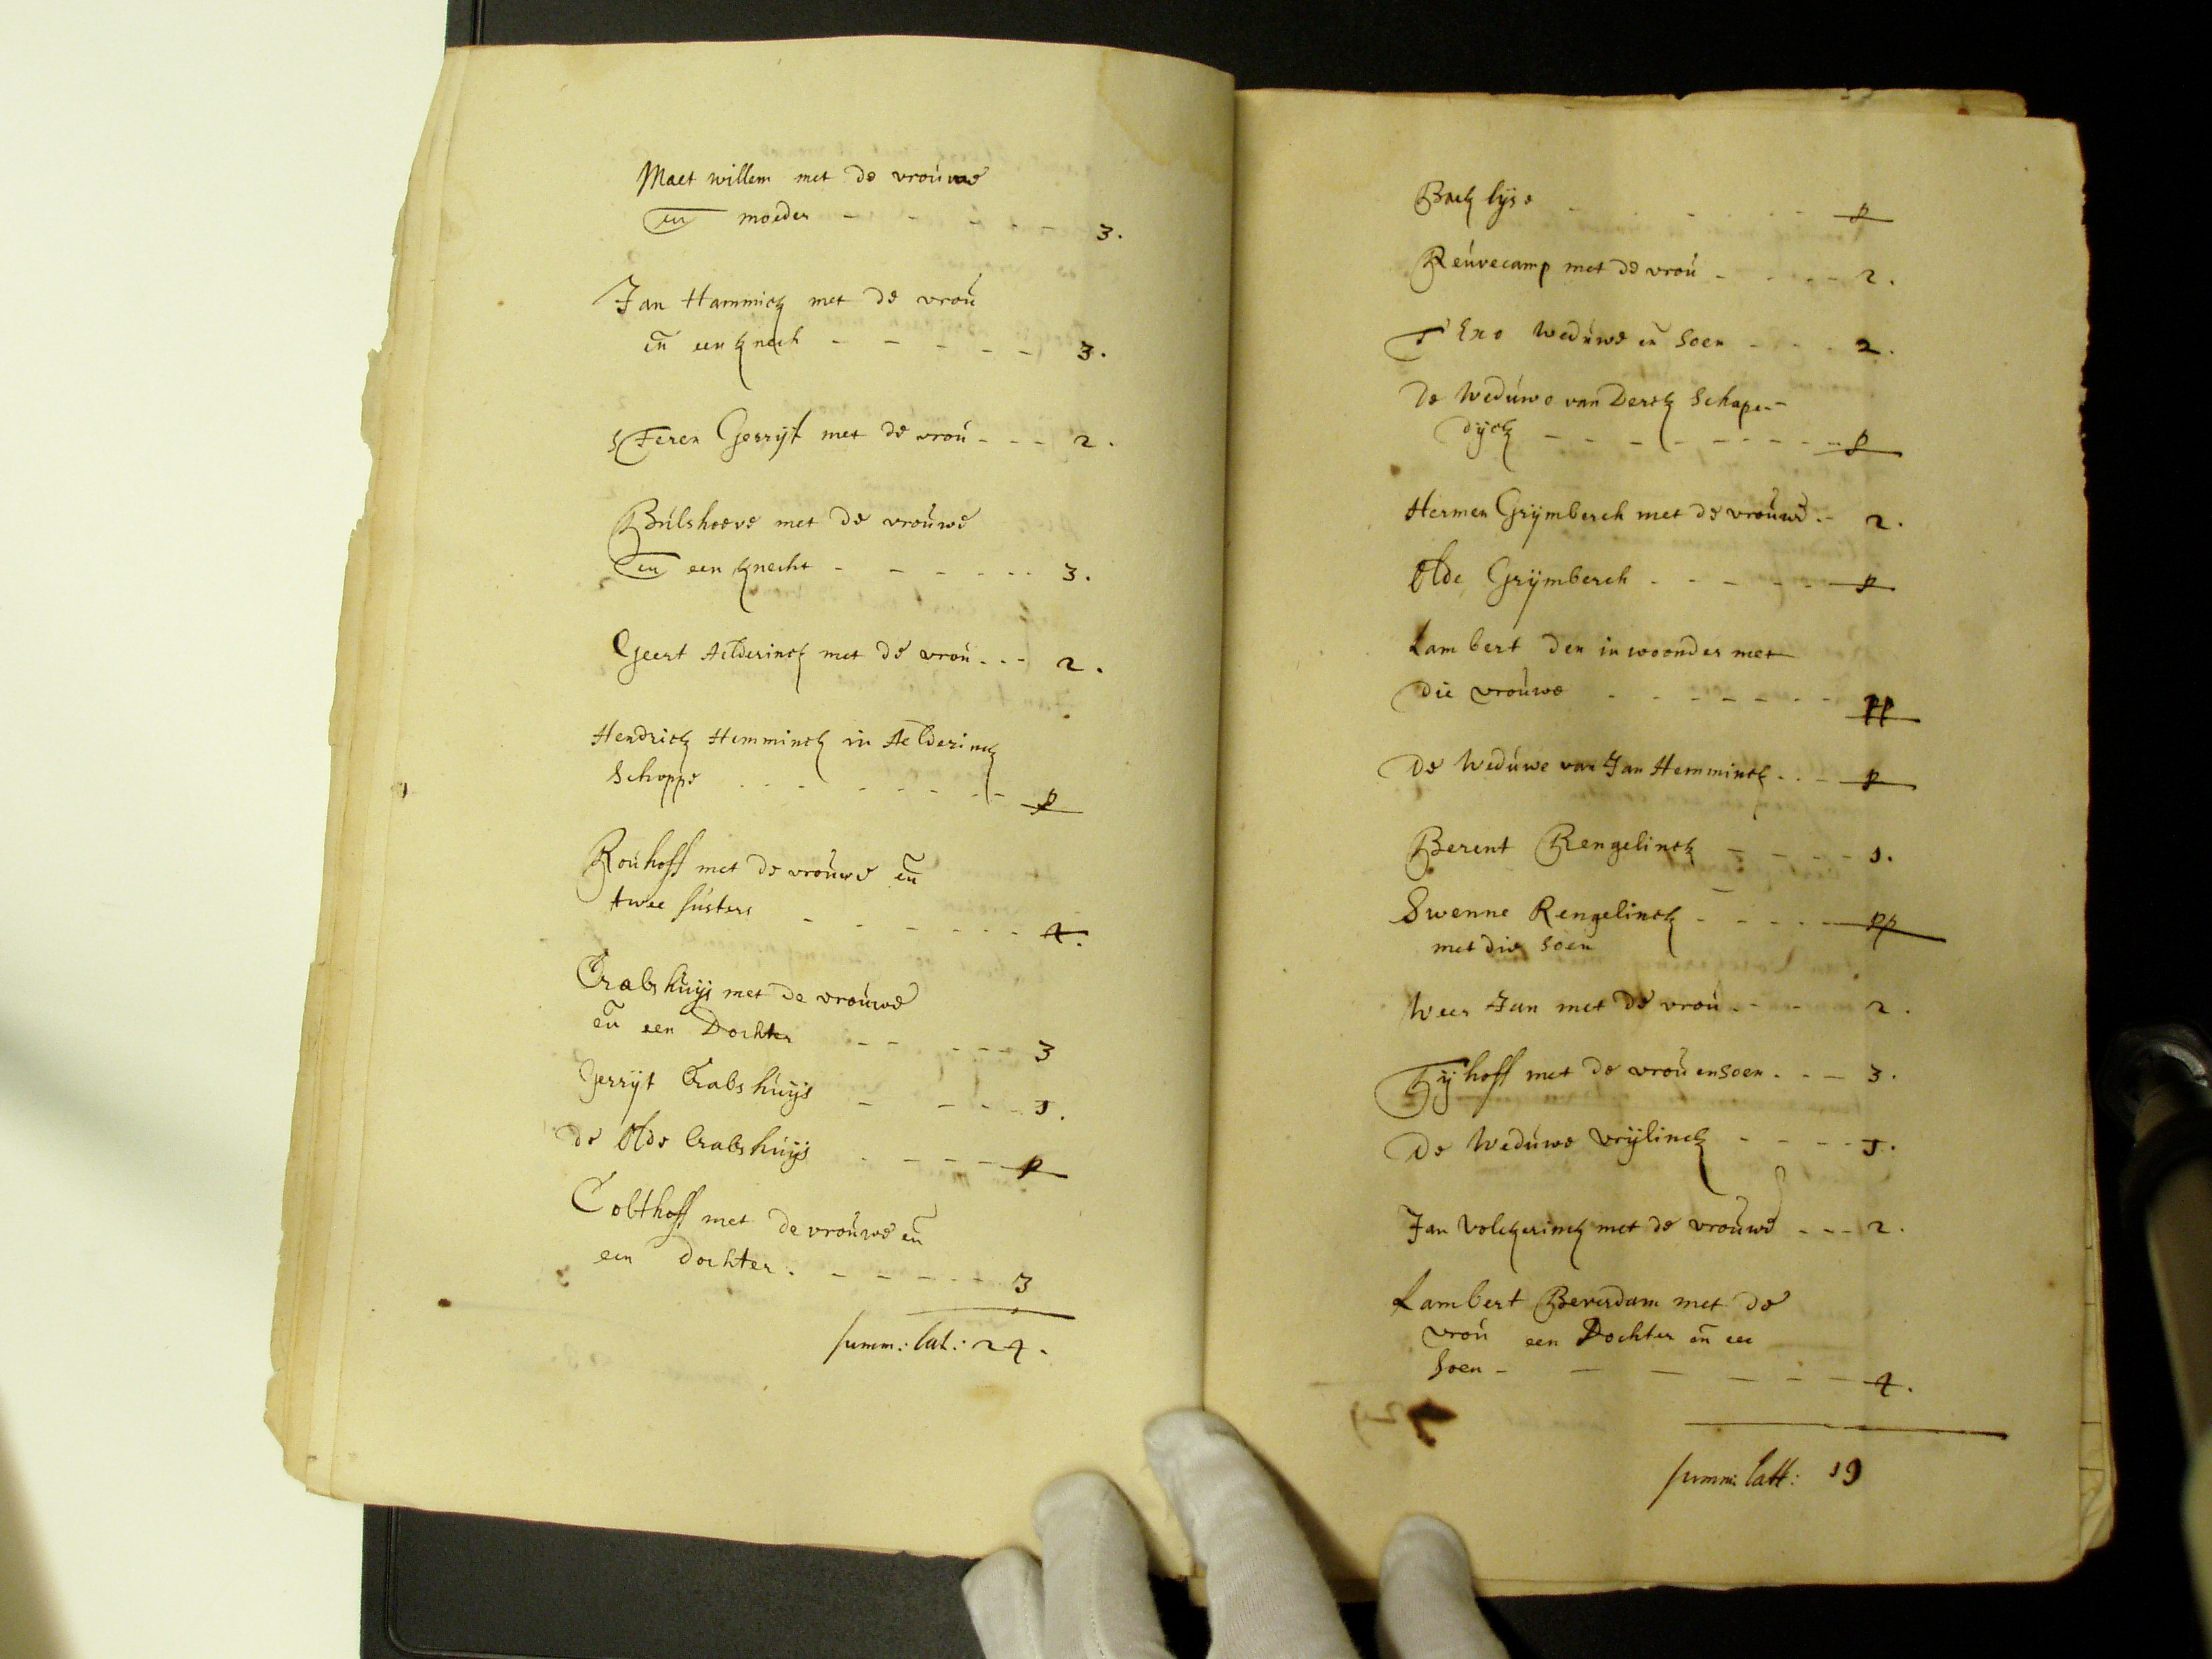 Maet willem met de vrouwe
en moeder - - - - - 3.
Jan Hammick met de vrou
en een knech - - - - - 3.
Feren Gerryt met de vrou - - - 2.
Bulshoeve met de vrouwe
en een knecht - - - - - - 3.
Geert Aelderinck met de vrou - - - 2.
Hendrick Hemminck in Aelderinck
Schoppe - - - - - - - p
Rouhoff met de vrouwe en
twee susters - - - - - - 4.
Crabshuijs met de vrouwe
en een Dochter - - - - - 3
Gerryt Crabshuijs - - - - 1.
de Olde Crabshuijs - - - - p
Colthoff met de vrouwe en
een dochter - - - - - - 3
summ: lat: 24.
Back lyse - - - - - p
Reuvecamp met de vrou - - - - 2.
weduwe en soen - - - 2.
De Weduwe van Derck Schapen-
dyck - - - - - - - - p
Hermen Grymberch met de vrouwe - 2.
Olde Grymberch - - - - - p
Lambert den inwoonder met
die vrouwe - - - - - - pp
De Weduwe van Jan Hemminck - - - p
Berent Rengelinck - - - - 1.
Swenne Rengelinck - - - - - pp
met die soen
Weer Jan met de vrou - - - 2.
Tyhoff met de vrou en soen - - - 3.
De Weduwe vrylinck - - - - 1.
Jan Volckerinck met de vrouwe - - - 2.
Lambert Beverdam met de
vrou een Dochter en een
soen - - - - - - 4.
summ: latt: 19